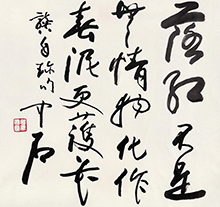 落红不是
无情物化作
春泥更护花
龚自珍句 中石